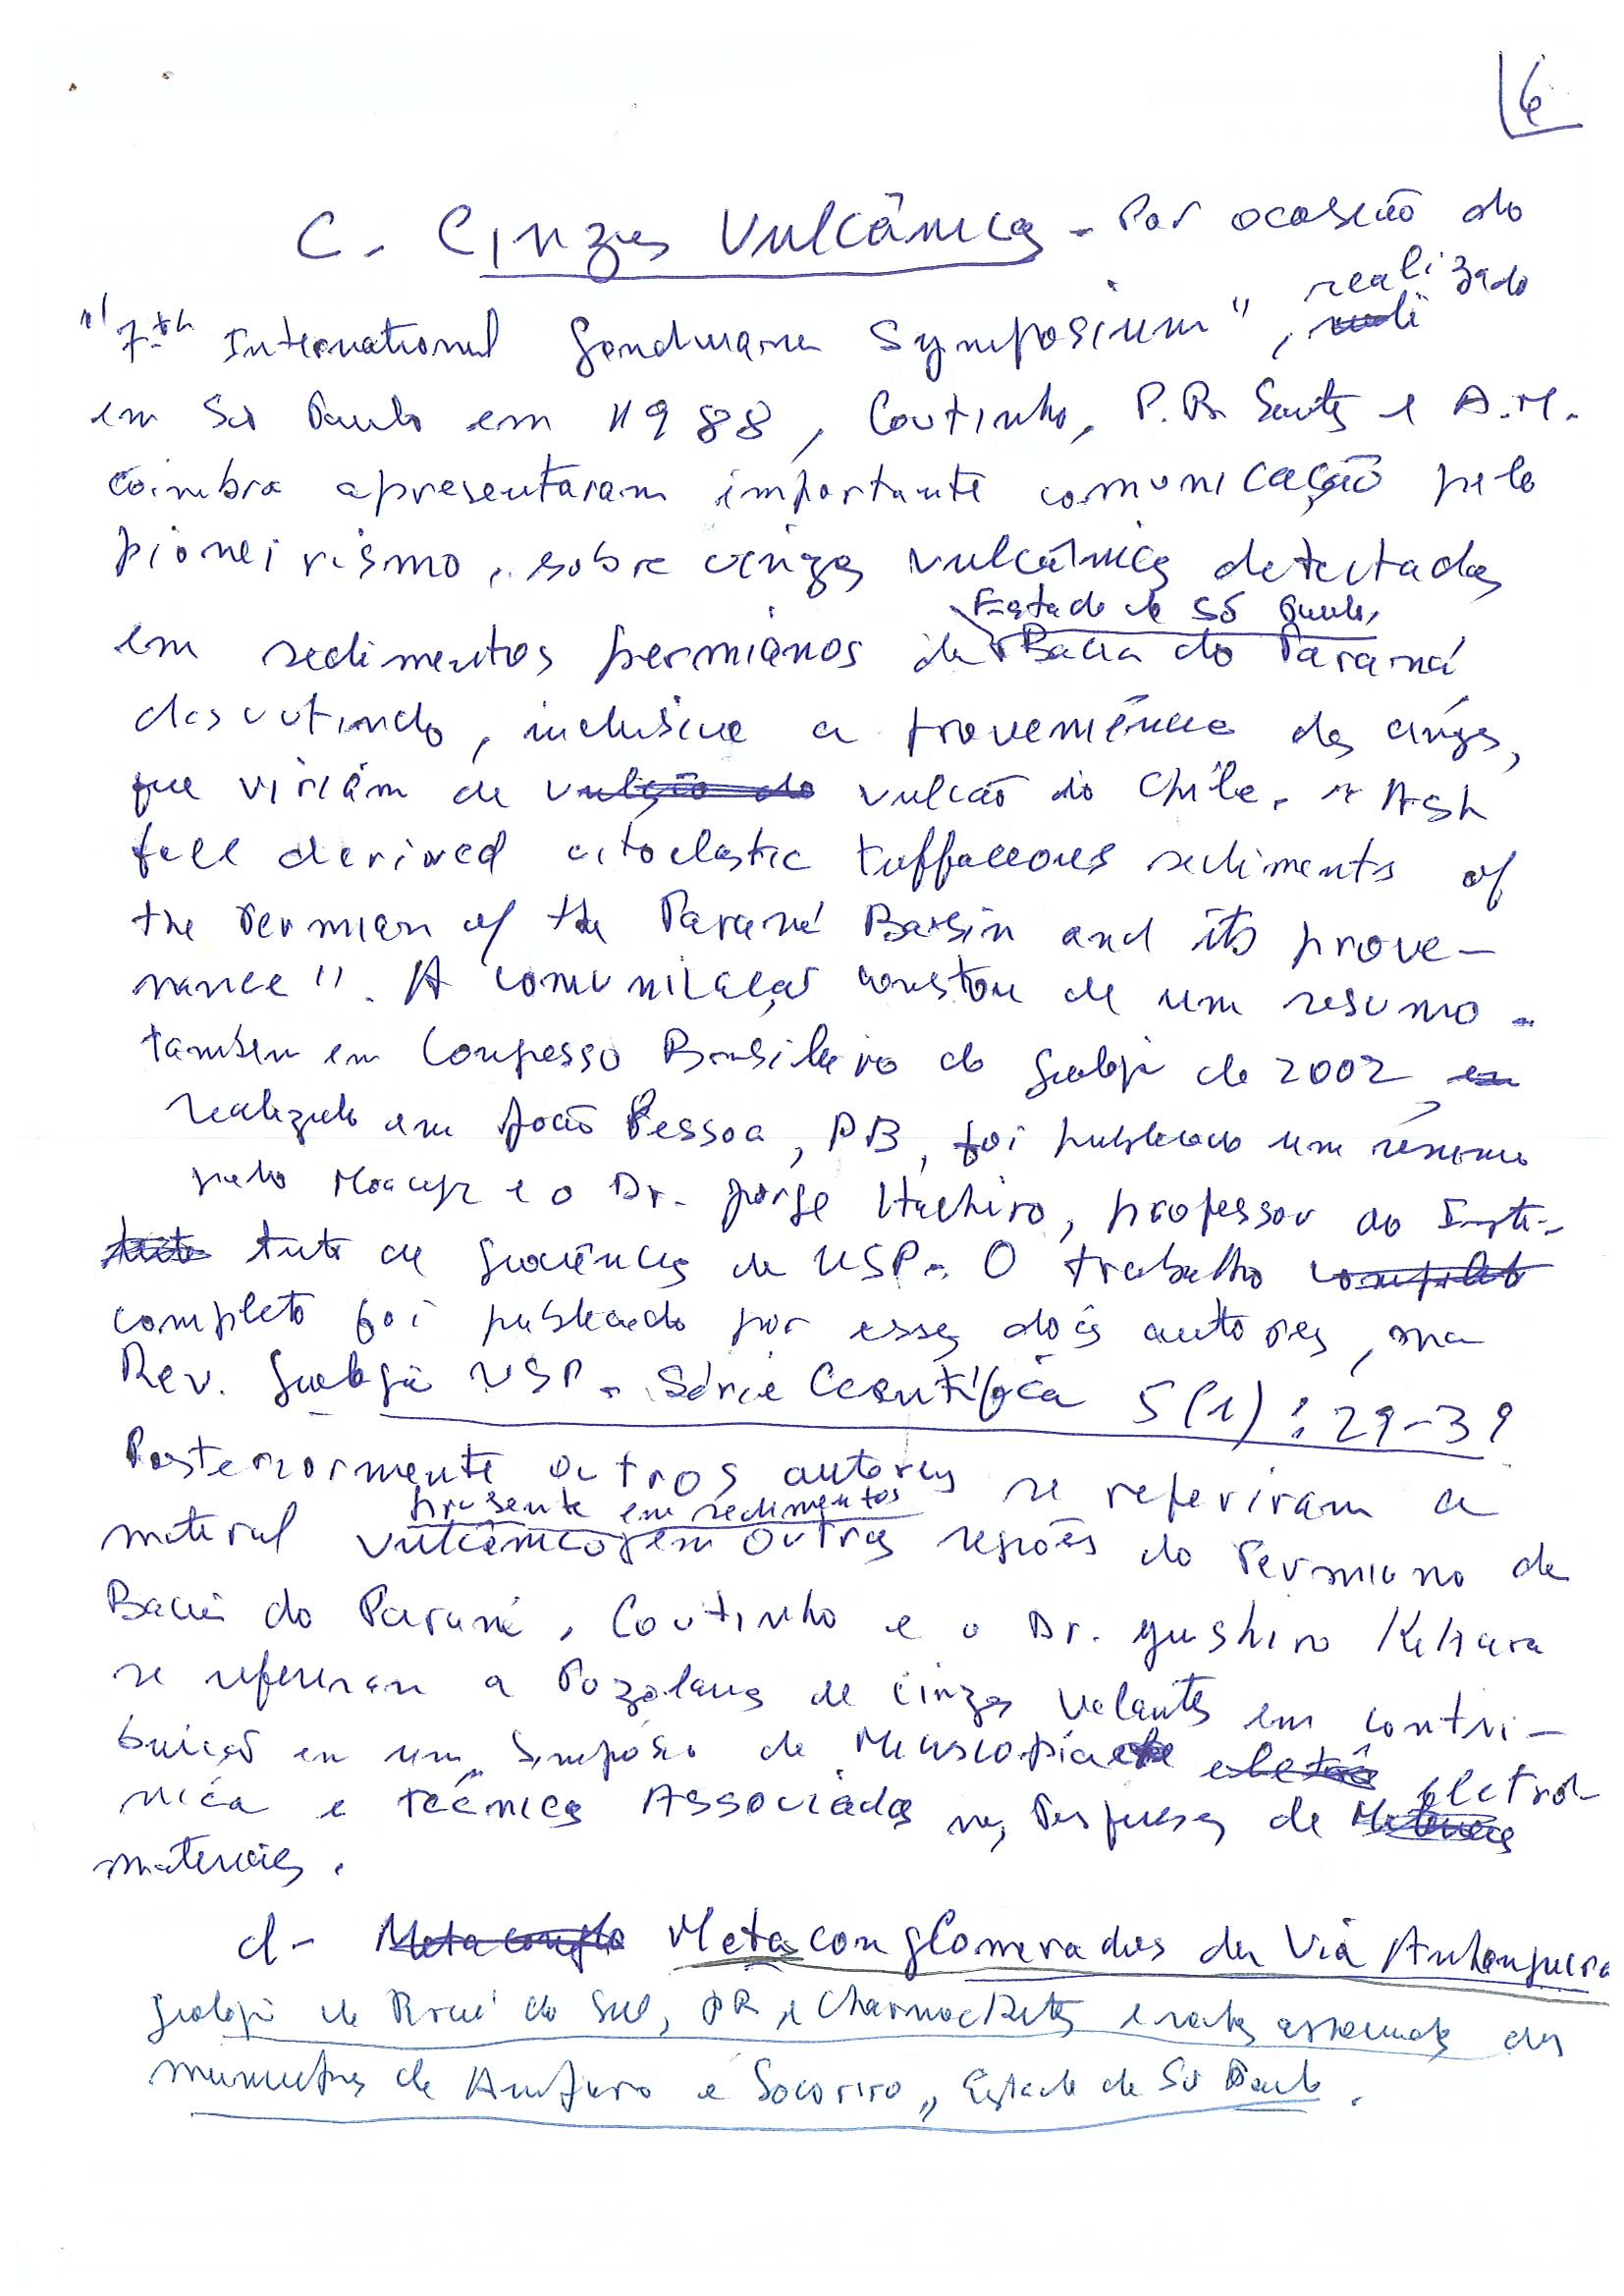 6
C. Cinzas Vulcânicas - Por ocasião do
"7th International Gondwana Symposium", realizado
em São Paulo em 1988, Coutinho, P.R. Santos e A.M.
Coimbra apresentaram importante comunicação pelo
pioneirismo, sobre cinzas vulcânicas detectadas
Estado de São Paulo,
em sedimentos permianos da Bacia do Paraná
discutindo, inclusive a proveniência das cinzas,
que viriam de vulcão do vulcão do Chile. "Ash
fall derived vitroclastic tuffaceous sediments of
the Permian of the Paraná Basin and its prove-
nance". A comunicação constou de um resumo.
também em Congresso Brasileiro de Geologia de 2002, em
realizado em João Pessoa, PB, foi publicado um resumo
pelo Moacyr e o Dr. Jorge Hachiro, professor do Insti-
tuto de Geociências da USP. O trabalho completo
completo foi publicado por esses dois autores, na
Rev. Geologia USP. Série Científica 5(1): 29-39
Posteriormente outros autores se referiram a
presente em sedimentos
material vulcânico em outras regiões do Permiano da
Bacia do Paraná, Coutinho e o Dr. Yushiro Kihara
se referiram a Pozolanas de cinzas volantes em contri-
buição em um Simpósio de Microscopia eletrô
nica e técnicas Associadas nas Pesquisas de
materiais.
d- Metaconglo Metaconglomerados da Via Anhanguera
Geologia de Piraí do Sul, PR, e Charnockitos e rochas associadas dos
municípios de Amparo e Socorro, Estado de São Paulo.